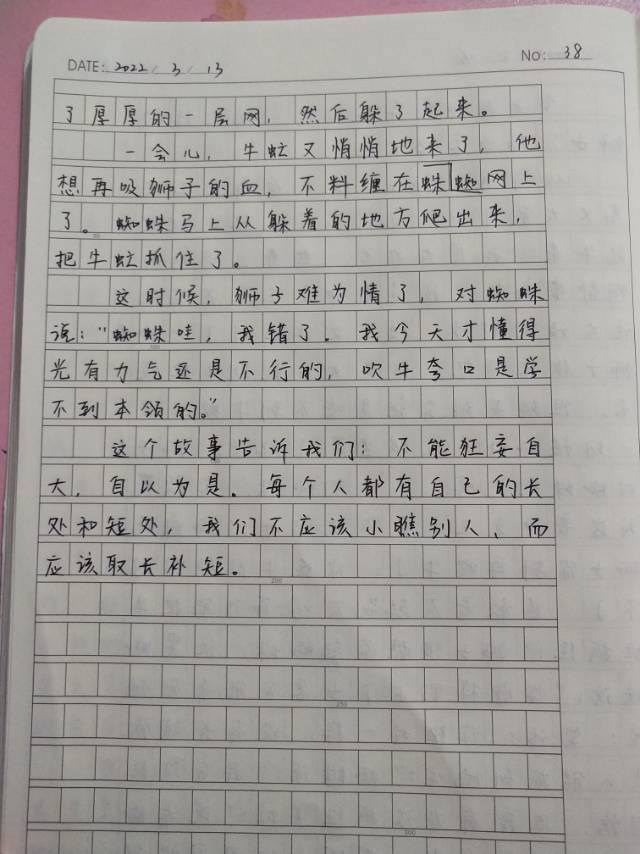 DATE: 2022 / 3 / 13
No: 38
了厚厚的一层网，然后躲了起来。
一会儿，牛虻又悄悄地来了，他
想再吸狮子的血，不料缠在蛛蜘网上
了。蜘蛛马上从躲着的地方爬出来，
把牛虻抓住了。
这时候，狮子难为情了，对蜘蛛
说：“蜘蛛哇，我错了。我今天才懂得
光有力气还是不行的，吹牛夸口是学
不到本领的。”
这个故事告诉我们：不能狂妄自
大，自以为是。每个人都有自己的长
处和短处，我们不应该小瞧别人，而
应该取长补短。
200
250
300